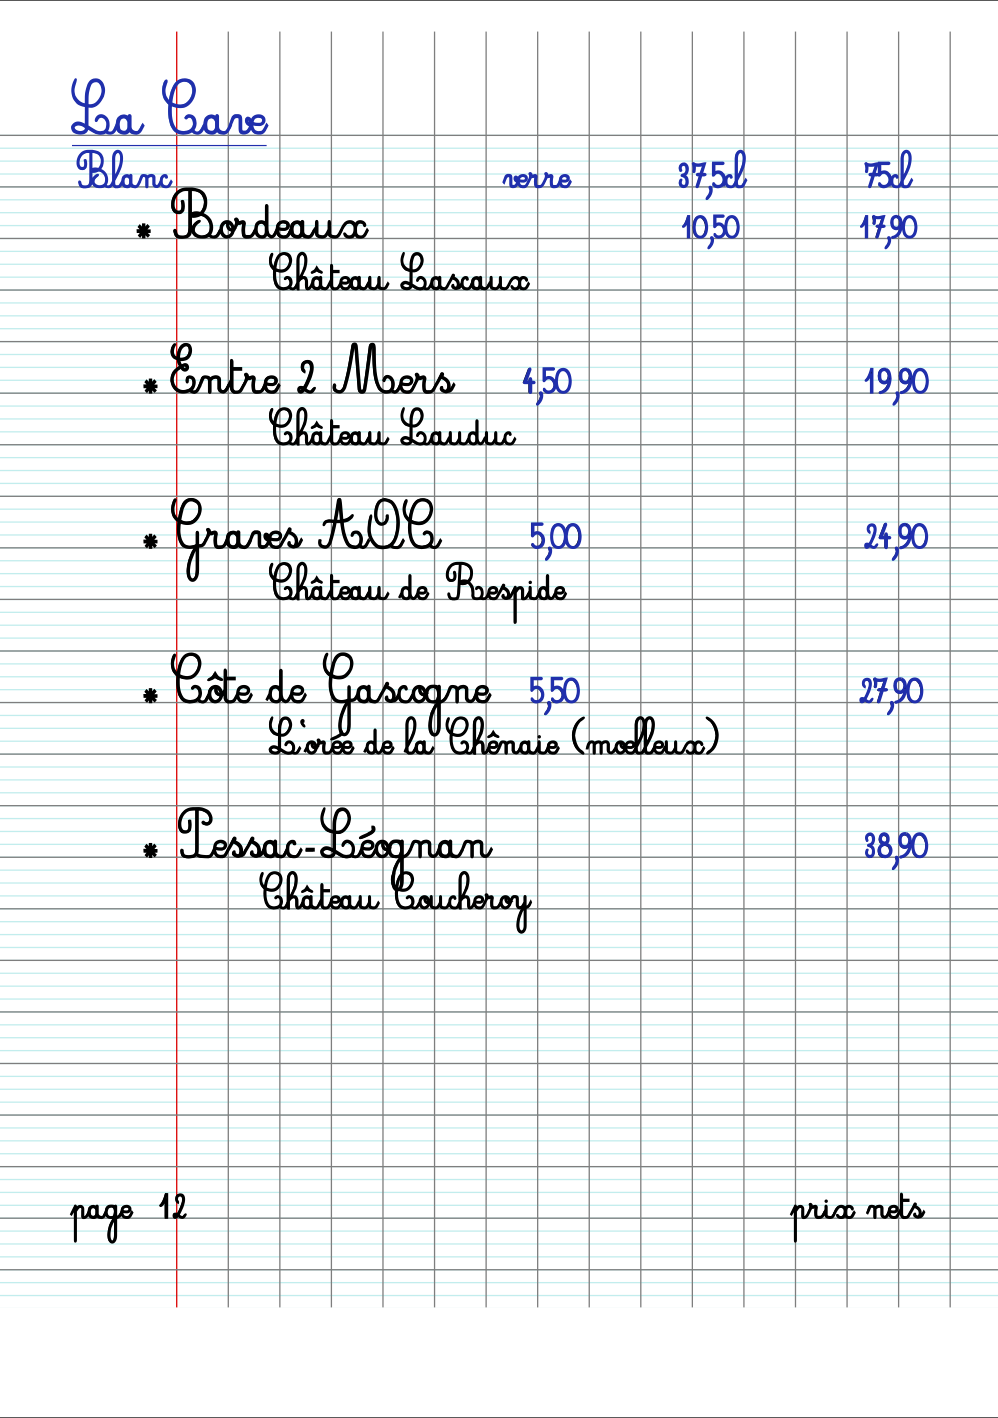 La Cave
Blanc verre 37,5cl 75cl
* Bordeaux 10,50 17,90
Château Lascaux
* Entre 2 Mers 4,50 19,90
Château Lauduc
* Graves AOC 5,00 24,90
Château de Respide
* Côte de Gascogne 5,50 27,90
L'orée de la Chênaie (moelleux)
* Pessac-Léognan 38,90
Château Coucheroy
page 12 prix nets